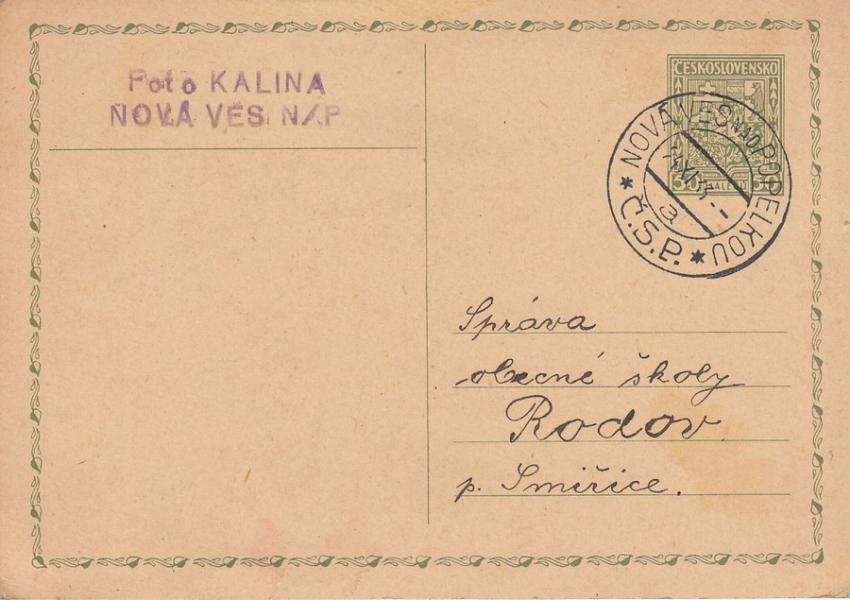 Foto KALINA
NOVÁ VES N/P
ČESKOSLOVENSKO
50 HALÉŘŮ 50
NOVÁ VES NAD POPELKOU
a
* Č.S.P. *
Správa
obecné školy
Rodov
p. Smiřice.